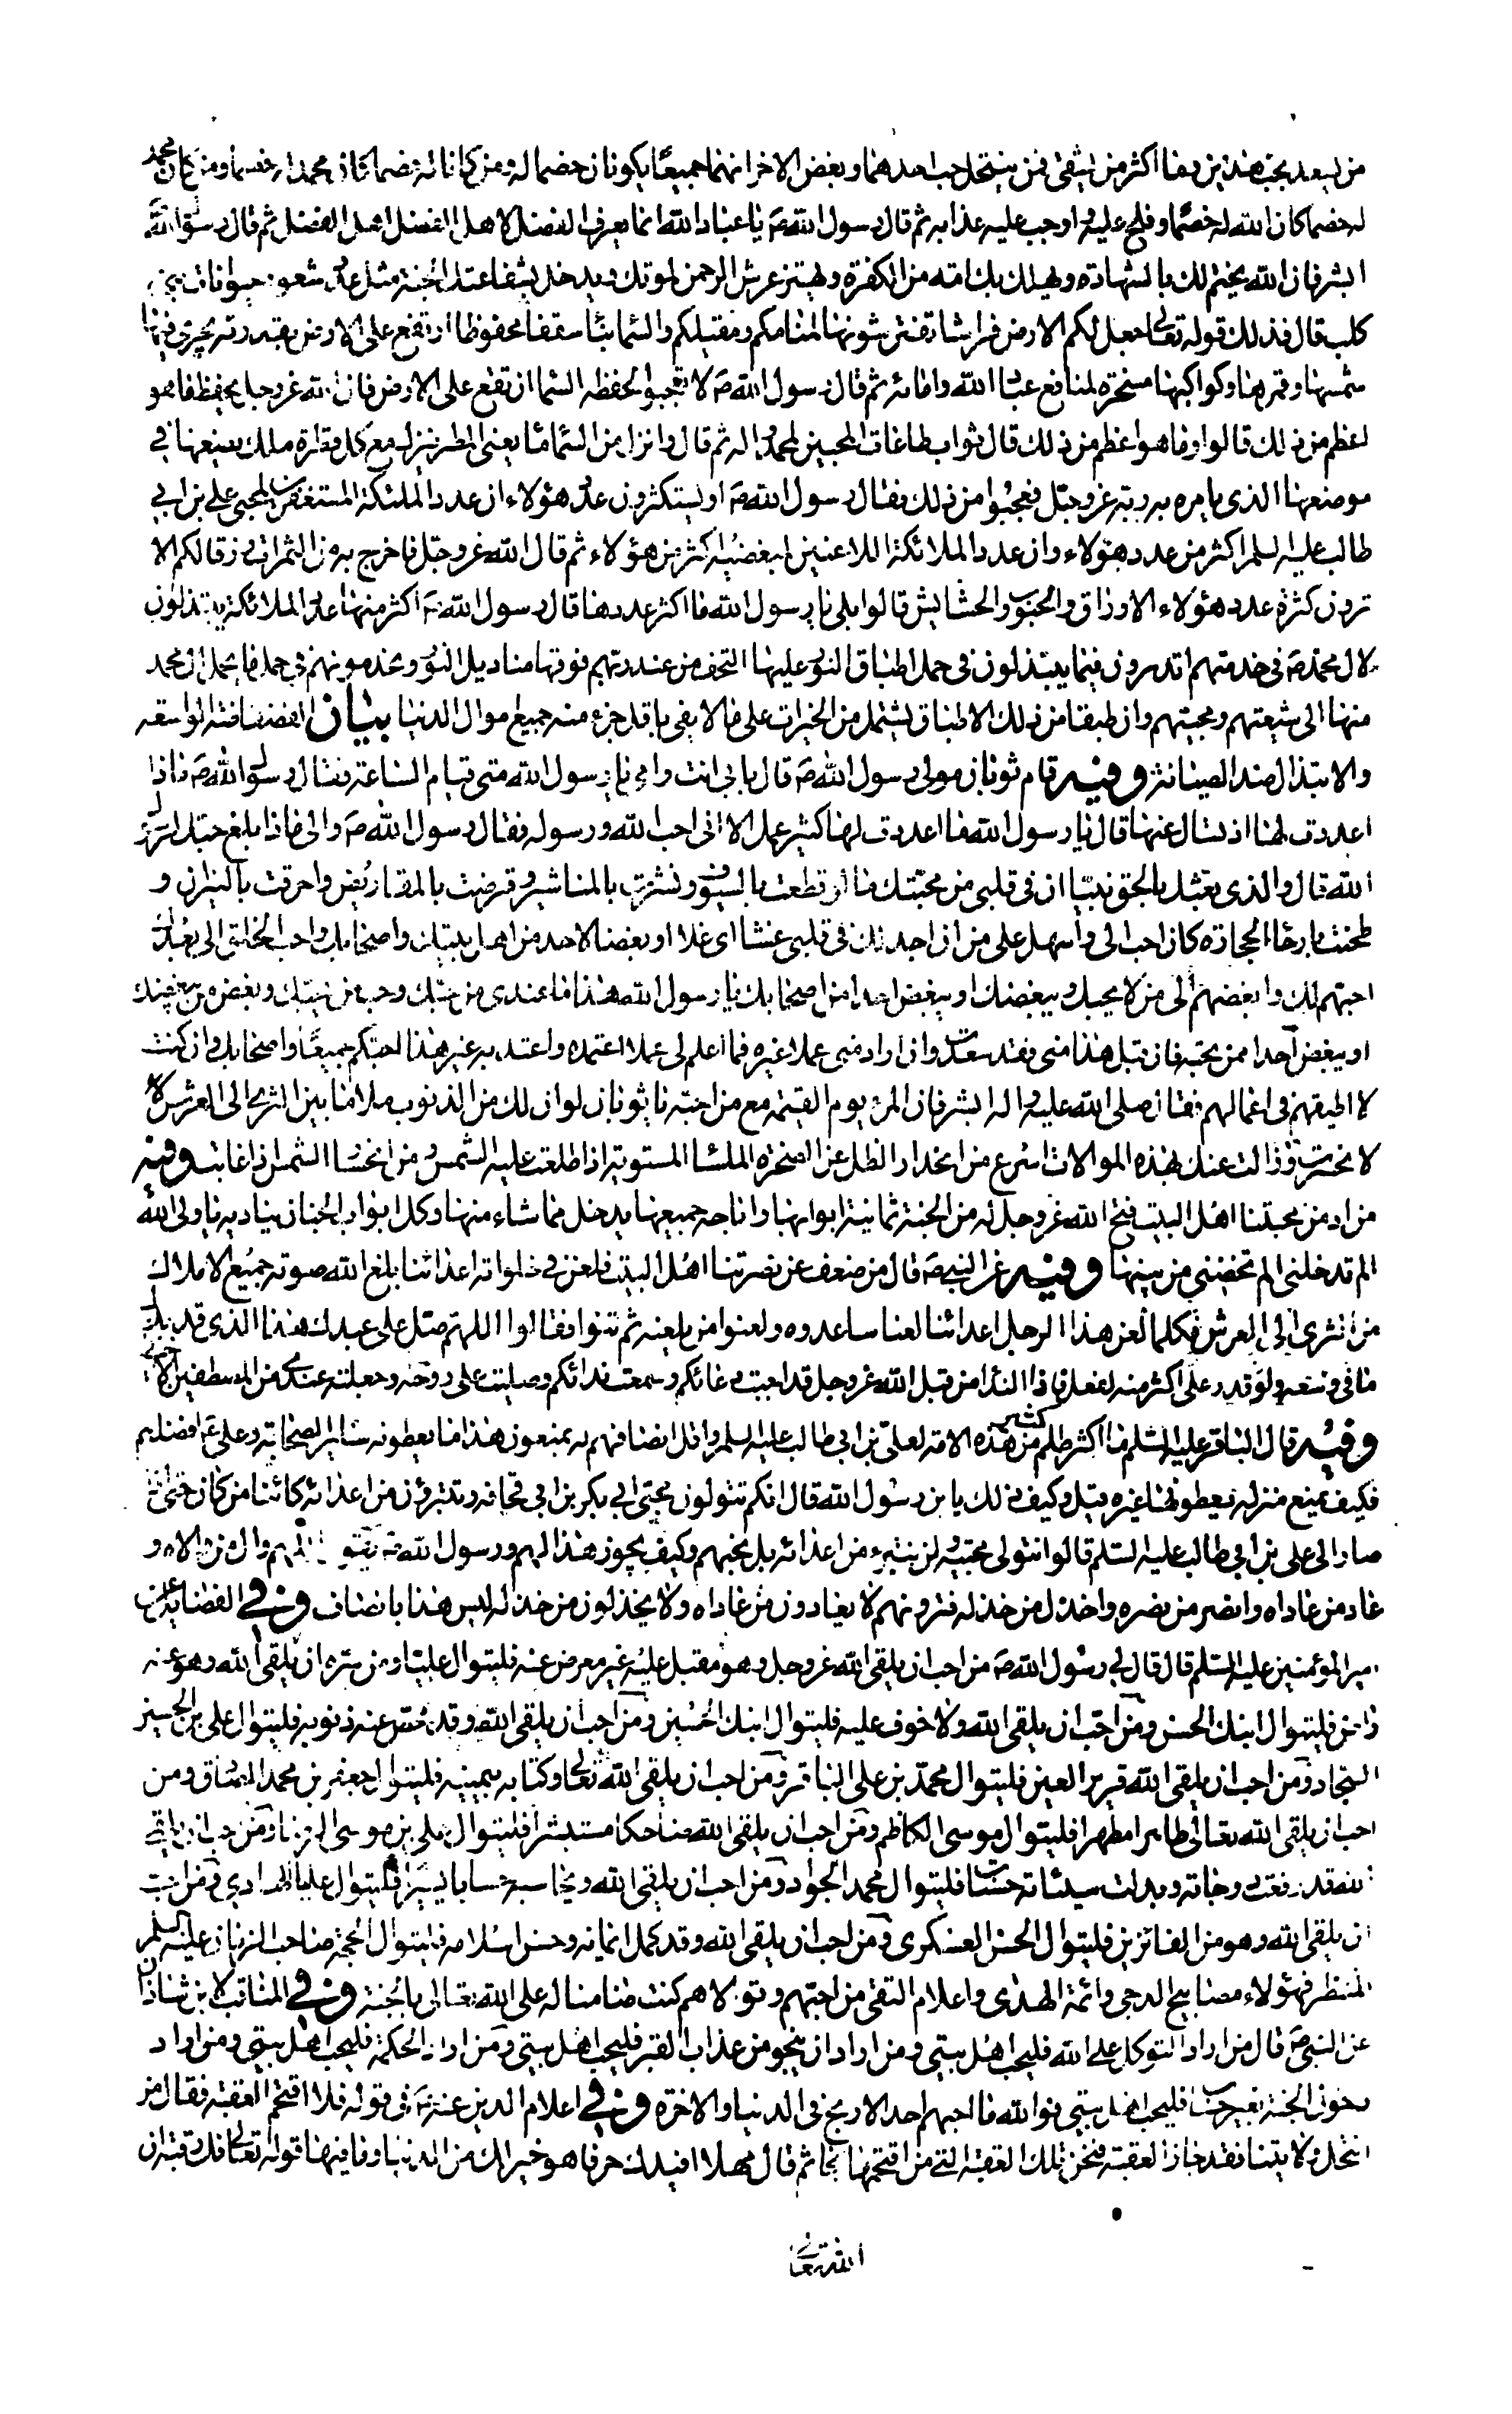 من يسعد بحب هذين بهما اكثر من يشقى فمن ينتحل حب احدهما وبغض الاخر انهما جميعًا يكونان خصما له ومن كانا له خصما كان محمد له خصما ومن كان محمد
له خصما كان الله له خصمًا وفلج عليه واوجب عليه عذابه ثم قال رسول الله صَ يا عباد الله انما يعرف الفضل لاهل الفضل اهل الفضل ثم قال رسول الله
ابشر فان الله يختم لك بالشهادة ويهلك بك امة من الكفرة ويهتز عرش الرحمن لموتك ويدخل بشفاعتك الجنة مثل عدد شعور حيوانات بني
كلب قال فذلك قوله تعالى جعل لكم الارض فراشا تفترشونها لمنامكم ومقيلكم والسماء بناء سقفا محفوظا ان تقع على الارض بقدرته تجري فيها
شمسها وقمرها وكواكبها مسخرة لمنافع عباد الله وامائه ثم قال رسول الله صَ لا تعجبوا لحفظه السماء ان تقع على الارض فان الله عز وجل يحفظ ما هو
اعظم من ذلك قالوا وما هو اعظم من ذلك قال ثواب طاعات المحبين لمحمد واله ثم قال وانزل من السماء ماء يعني المطر ينزل مع كل قطرة ملك يضعها في
موضعها الذي يامره به ربه عز وجل فعجبوا من ذلك فقال رسول الله صَ اوتستكثرون عدد هؤلاء ان عدد الملئكة المستغفرين لمحبي علي بن ابي
طالب عليه السلم اكثر من عدد هؤلاء وان عدد الملائكة اللاعنين لمبغضيه اكثر من هؤلاء ثم قال الله عز وجل فاخرج به من الثمرات رزقا لكم الا
ترون كثرة عدد هؤلاء الاوراق والحبوب والحشايش قالوا بلى يا رسول الله ما اكثر عددها قال رسول الله صَ اكثر منها عدد الملائكة يبتذلون
لال محمد صَ في خدمتهم اتدرون فيما يبتذلون في حمل اطباق النور عليها التحف من عند ربهم فوقها مناديل النور ويخدمونهم في حمل ما يحمل ال محمد
منها الى شيعتهم ومحبيهم وان طبقا من ذلك الاطباق يشتمل من الخيرات على ما لا يفي باقل جزء منه جميع اموال الدنيا بيان الفضفاضة الواسعة
والابتذال ضد الصيانة وفيه قام ثوبان مولى رسول الله صَ قال بابي انت وامي يا رسول الله متى قيام الساعة فقال رسول الله صَ ماذا
اعددت لها اذ تسال عنها قال يا رسول الله ما اعددت لها كثير عمل الا اني احب الله ورسوله فقال رسول الله صَ والى ماذا بلغ حبك لرسول
الله قال والذي بعثك بالحق نبيا ان في قلبي من محبتك ما لو قطعت بالسيوف ونشرت بالمناشير وقرضت بالمقاريض واحرقت بالنيران و
طحنت بارحاء الحجارة كان احب الي واسهل علي من ان اجد لك في قلبي غشا او غلا او بغضا لاحد من اهل بيتك واصحابك واحب الخلق الي بعدك
احبهم لك وابغضهم الي من لا يحبك ويبغضك او يبغض احدا من اصحابك يا رسول الله هذا ما عندي من حبك وحب من يحبك وبغض من يبغضك
او يبغض احدا ممن تحبه فان قبل هذا مني فقد سعدت وان اراد مني عملا غيره فما اعلم لي عملا اعتمده واعتد به غير هذا احبكم جميعًا واصحابك وان كنت
لا اطيقهم في اعمالهم فقال صلى الله عليه واله ابشر فان المرء يوم القيمة مع من احبه يا ثوبان لو ان لك من الذنوب ملا ما بين الثرى الى العرش
لا نحسرت وزالت عنك بهذه الموالات اسرع من انحدار الظل عن الصخرة الملساء المستوية اذا طلعت عليه الشمس ومن انحسار الشمس اذا غابت وفيه
من ادمن محبتنا اهل البيت فتح الله عز وجل له من الجنة ثمانية ابوابها واباحه جميعها يدخل مما شاء منها وكل ابواب الجنان يناديه يا ولي الله
الم تدخلني الم تخصني من بينها وفيه عن النبي صَ قال من ضعف عن نصرتنا اهل البيت فلعن في خلواته اعدائنا بلغ الله صوته جميع الاملاك
من الثرى الى العرش فكلما لعن هذا الرجل اعدائنا لعنا ساعدوه ولعنوا من يلعنه ثم ثنوا فقالوا اللهم صل على عبدك هذا الذي قد بذل
ما في وسعه ولو قدر على اكثر منه لفعل فاذا النداء من قبل الله عز وجل قد اجبت دعائكم وسمعت ندائكم وصليت على روحه وجعلته عندي من المصطفين الاخيار
وفيه قال الباقر عليه السلم ما اكثر ظلم كثير من هذه الامة لعلي بن ابي طالب عليه السلم واقل انصافهم له يمنعون هذا ما يعطونه ساير الصحابة وعلي عَ افضلهم
فكيف يمنع منزلة يعطونها غيره قيل وكيف ذلك يا بن رسول الله قال انكم تتولون محبي ابي بكر بن ابي قحافة وتتبرؤن من اعدائه كائنا من كان حتى اذا
صار الى علي بن ابي طالب عليه السلم قالوا نتولى محبيه ولن نتبرء من اعدائه بل نحبهم وكيف يجوز هذا لهم ورسول الله صَ يقول اللهم وال من والاه و
عاد من عاداه وانصر من نصره واخذل من خذله فترونهم لا يعادون من عاداه ولا يخذلون من خذله ليس هذا بانصاف وفي الفضايل عن
امير المؤمنين عليه السلم قال قال لي رسول الله صَ من احب ان يلقى الله عز وجل وهو مقبل عليه غير معرض عنه فليتوال عليا ومن سره ان يلقى الله وهو عنه
راض فليتوال ابنك الحسن ومن احب ان يلقى الله ولا خوف عليه فليتوال ابنك الحسين ومن احب ان يلقى الله وقد محص عنه ذنوبه فليتوال علي بن الحسين
السجاد ومن احب ان يلقى الله قرير العين فليتوال محمد بن علي الباقر ومن احب ان يلقى الله تعالى وكتابه بيمينه فليتوال جعفر بن محمد الصادق ومن
احب ان يلقى الله تعالى طاهرا مطهرا فليتوال موسى الكاظم ومن احب ان يلقى الله ضاحكا مستبشرا فليتوال علي بن موسى الرضا ومن احب ان يلقى
الله قد رفعت درجاته وبدلت سيئاته حسنات فليتوال محمد الجواد ومن احب ان يلقى الله ويحاسبه حسابا يسيرا فليتوال عليا الهادي ومن احب
ان يلقى الله وهو من الفائزين فليتوال الحسن العسكري ومن احب ان يلقى الله وقد كمل ايمانه وحسن اسلامه فليتوال الحجة صاحب الزمان عليه السلم
المنتظر فهؤلاء مصابيح الدجى وائمة الهدى واعلام التقى من احبهم وتولاهم كنت ضامنا له على الله تعالى بالجنة وفي المناقب لابن شاذان
عن النبي صَ قال من اراد التوكل على الله فليحب اهل بيتي ومن اراد ان ينجو من عذاب القبر فليحب اهل بيتي ومن اراد الحكمة فليحب اهل بيتي ومن اراد
دخول الجنة بغير حساب فليحب اهل بيتي فوالله ما احبهم احد الا ربح في الدنيا والاخرة وفي اعلام الدين عنه عَ في قوله فلا اقتحم العقبة فقال من
انتحل ولايتنا فقد جاز العقبة فنحن تلك العقبة التي من اقتحمها نجا ثم قال مهلا افيدك حرفا هو خير لك من الدنيا وما فيها قوله تعالى فك رقبة ان
الله تعالى